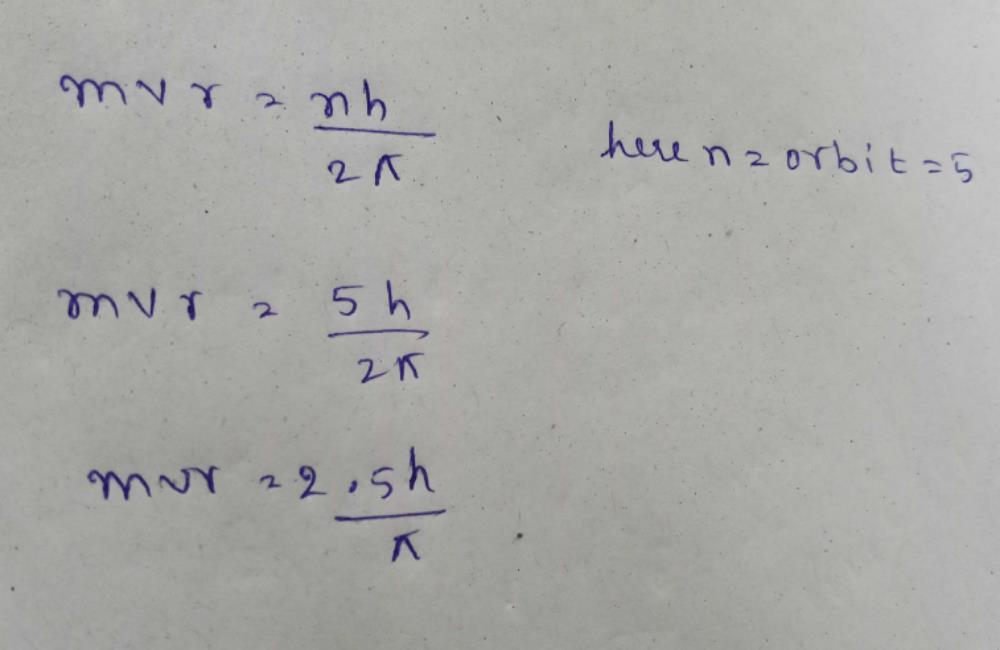 mvr = nh/2π
here n = orbit = 5
mvr = 5h/2π
mvr = 2.5h/π